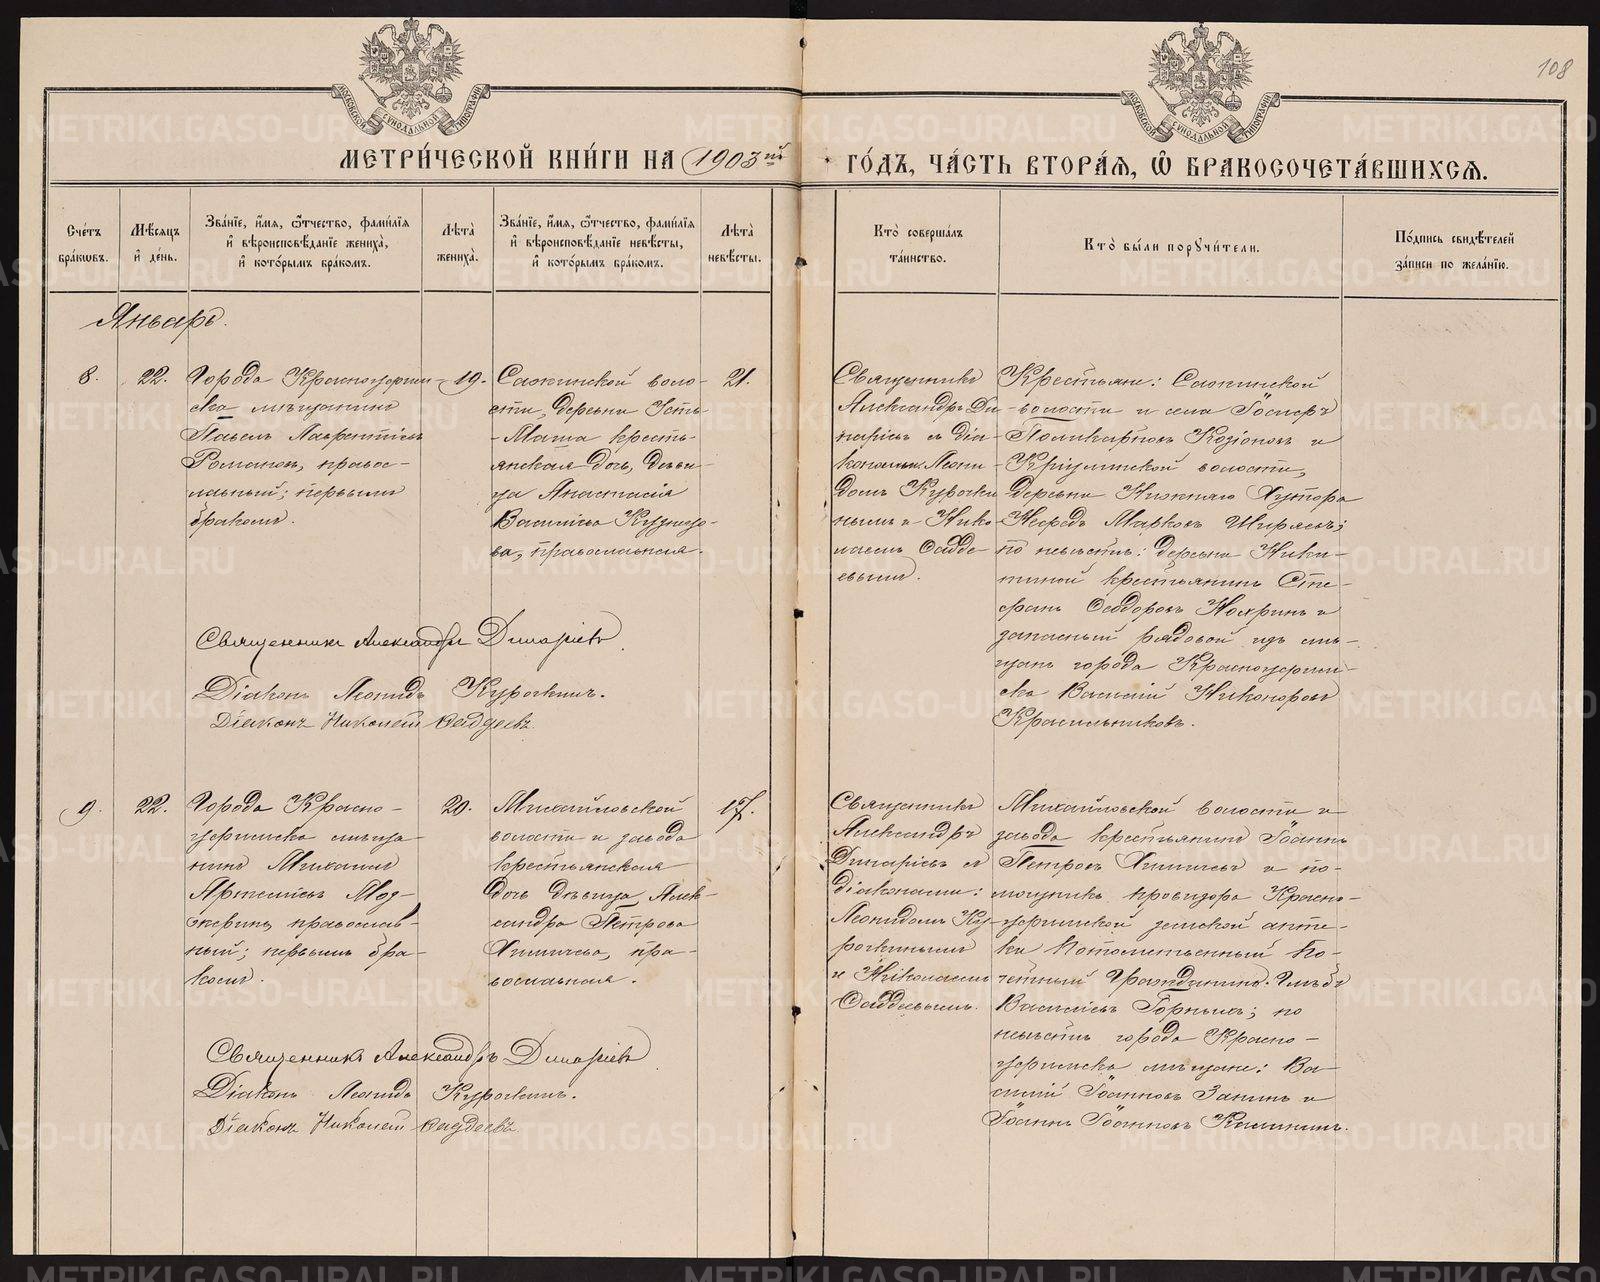 108
МОСКОВСКОЙ СѴНОДАЛЬНОЙ ТИПОГРАФІИ
МОСКОВСКОЙ СѴНОДАЛЬНОЙ ТИПОГРАФІИ
МЕТРИ́ЧЕСКОЙ КНИ́ГИ НА 1903й ГО́ДЪ, ЧА́СТЬ ВТОРА́Я, Ѡ БРАКОСОЧЕТА́ВШИХСЯ.
Сче́тъ бра́кωвъ.
Мѣ́сяцъ и҆ де́нь.
Зва́нїе, и҆́мя, ѻ҆́тчество, фами́лїя и҆ вѣроисповѣ́данїе жениха̀, и҆ кото́рымъ бра́комъ.
Лѣ́та жениха̀.
Зва́нїе, и҆́мя, ѻ҆́тчество, фами́лїя и҆ вѣроисповѣ́данїе невѣ́сты, и҆ кото́рымъ бра́комъ.
Лѣ́та невѣ́сты.
Кто̀ соверша́лъ та́инство.
Кто̀ бы́ли порꙋчи́тели.
По́дпись свидѣ́телей за́писи по жела́нїю.
Январь.
8.
22.
Города Красноуфим-
ска мѣщанинъ
Павелъ Лаврентіевъ
Романовъ, правос-
лавный; первымъ
бракомъ.
19.
Сажинской воло-
сти, деревни Усть-
-Маша кресть-
янская дочь, дѣви-
ца Анастасія
Васильева Кузнецо-
ва, православная.
21.
Священникъ
Александръ Ди-
наріевъ съ діа-
конами: Леони-
домъ Курочки-
нымъ и Нико-
лаемъ Фадде-
евымъ.
Крестьяне: Сажинской
волости и села
Поликарповъ Козіоновъ и
Кріулинской волости,
деревни Нижняго Хутора
Марковъ Ширяевъ;
по невѣстѣ: деревни Ники-
тиной крестьянинъ Сте-
фанъ Ѳеодоровъ и
запасный рядовой изъ мѣ-
щанъ города Красноуфим-
ска Василій Никоноровъ
Красильниковъ.
Священникъ Александръ Динаріевъ.
Діаконъ Леонидъ Курочкинъ.
Діаконъ Николай Фаддеевъ
9.
22.
Города Красно-
уфимска мѣща-
нинъ Михаилъ
Артеміевъ Моз-
жеринъ, православ-
ный; первымъ бра-
комъ.
20.
Михайловской
волости и завода
крестьянская
дочь дѣвица Алек-
сандра Петрова
Химичева, пра-
вославная.
17.
Священникъ
Александръ
Динаріевъ съ
діаконами:
Леонидомъ Ку-
рочкинымъ
и Николаемъ
Фаддеевымъ.
Михайловской волости и
завода крестьянинъ Іоаннъ
Петровъ Химичевъ и по-
мощникъ провизора Красно-
уфимской земской апте-
ки потомственный по-
четный гражданинъ Глѣбъ
Васильевъ Горныхъ; по
невѣстѣ города Красно-
уфимска мѣщане: Ва-
силій Іоанновъ Занинъ и
Іоаннъ Іоанновъ Калининъ.
Священникъ Александръ Динаріевъ
Діаконъ Леонидъ Курочкинъ.
Діаконъ Николай Фаддеевъ
METRIKI.GASO-URAL.RU